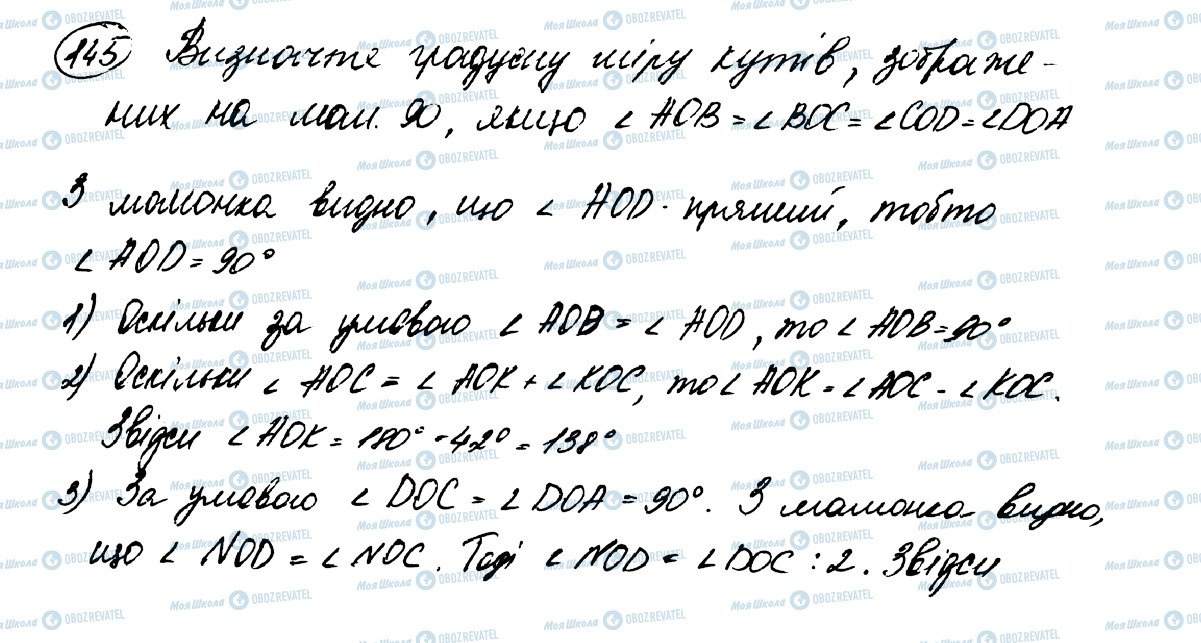 145 Визначте градусну міру кутів, зображе-
них на мал. 90, якщо ∠AOB = ∠BOC = ∠COD = ∠DOA
З малюнка видно, що ∠AOD - прямий, тобто
∠AOD = 90°
1) Оскільки за умовою ∠AOB = ∠AOD, то ∠AOB = 90°
2) Оскільки ∠AOC = ∠AOK + ∠KOC, то ∠AOK = ∠AOC - ∠KOC.
Звідси ∠AOK = 180° - 42° = 138°
3) За умовою ∠DOC = ∠DOA = 90°. З малюнка видно,
що ∠NOD = ∠NOC. Тоді ∠NOD = ∠DOC : 2. Звідси
Моя Школа OBOZREVATEL